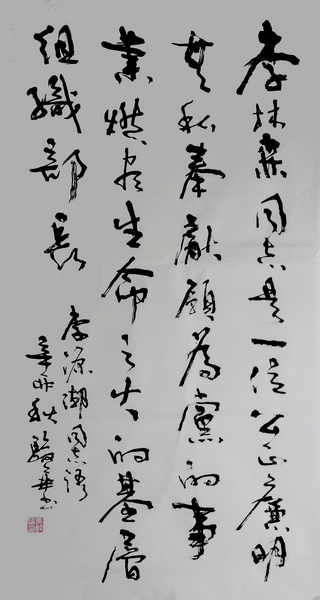 李林森同志是一位公正廉明
無私奉獻願為黨的事
業燃尽生命之火的基層
組織部長
李源潮同志語
辛卯秋